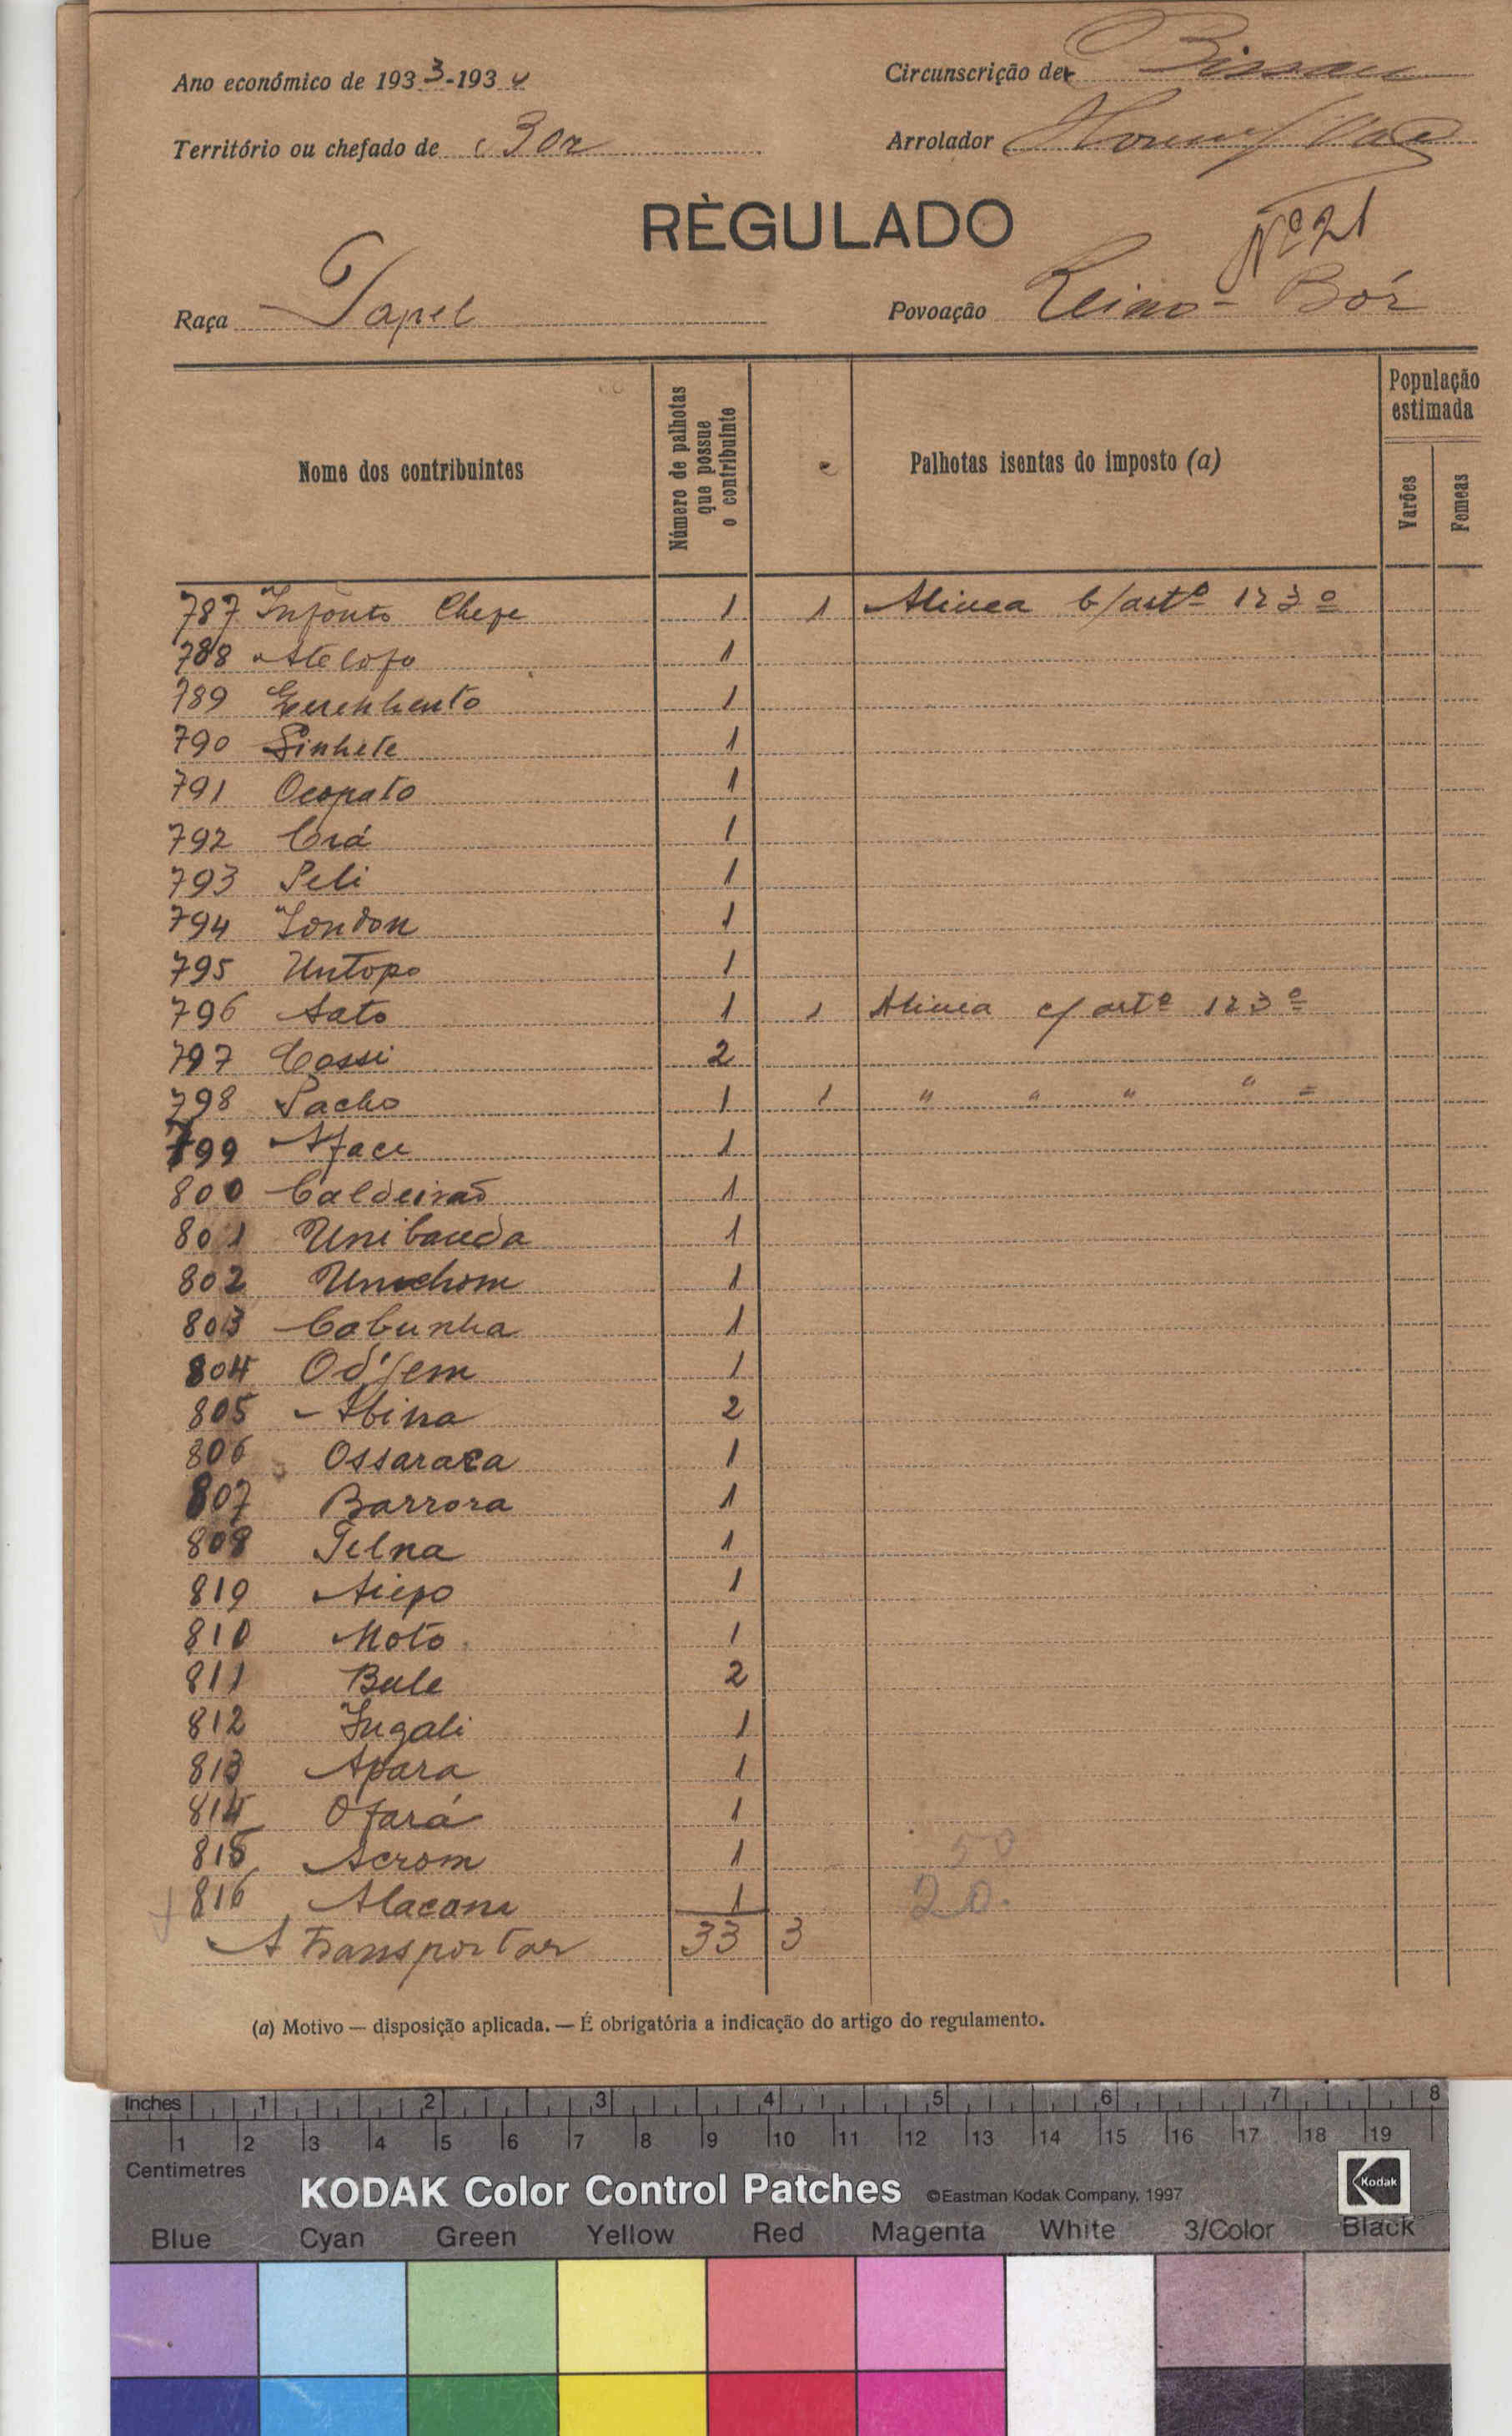 Ano económico de 1933-1934
Circunscrição de Bissau
Território ou chefado de Bor
Arrolador
RÈGULADO
Nº 21
Raça Papel
Povoação Reino-Bór
Nome dos contribuintes
Número de palhotas que possue o contribuinte
Palhotas isentas do imposto (a)
População estimada
Varões
Femeas
787 Infonto Chefe 1 1 Alinea b/artº 123º
788 Atelofo 1
789 1
790 Sinhete 1
791 Ocopato 1
792 Crá 1
793 Peli 1
794 London 1
795 Untopo 1
796 Sato 1 1 Alinea c/ artº 123º
797 Cossi 2
798 Pacho 1 1 " " " " =
799 Aface 1
800 Caldeirão 1
801 Unibanda 1
802 Unuchom 1
803 Cabunha 1
804 Od'jem 1
805 Abina 2
806 Ossarara 1
807 Barrora 1
808 Telna 1
819 Aiepo 1
810 Moto 1
811 Bule 2
812 Jugali 1
813 Apara 1
814 Ofará 1
815 Acrom 1 50
816 Alacom 1 20.
A transportar 33 3
(a) Motivo — disposição aplicada. — É obrigatória a indicação do artigo do regulamento.
Inches 1 2 3 4 5 6 7 8
1 2 3 4 5 6 7 8 9 10 11 12 13 14 15 16 17 18 19
Centimetres
KODAK Color Control Patches ©Eastman Kodak Company, 1997 Kodak
Blue Cyan Green Yellow Red Magenta White 3/Color Black